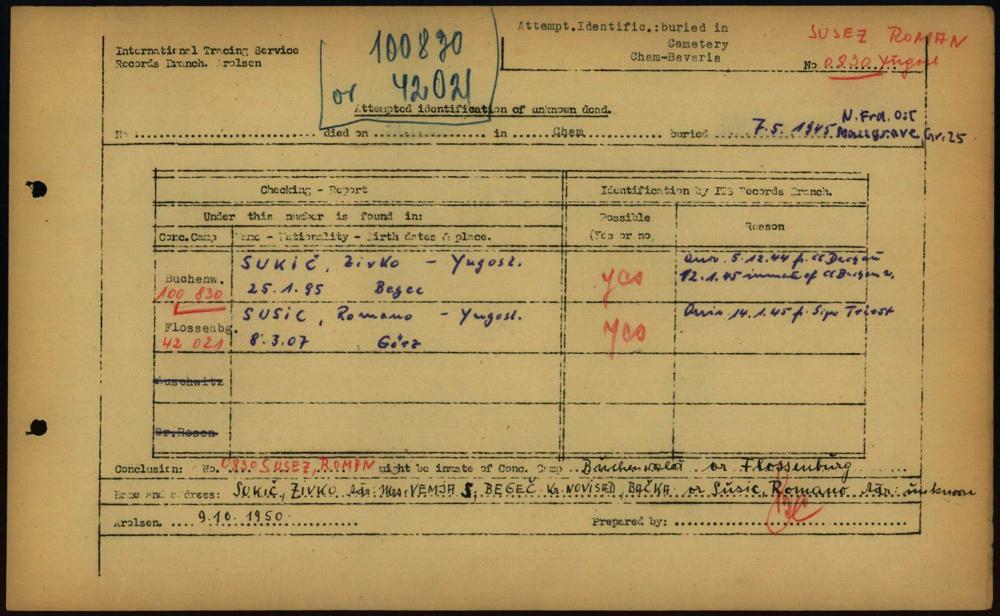 International Tracing Service
Records Branch. Arolsen
100830
or 42021
Attempt.Identific.:buried in
Cemetery
Cham-Bavaria
SUSEZ ROMAN
No 0830 Yugosl
Attempted identification of unknown dead.
No ........ died on ........ in Cham ........ buried 7.5.1945 N.Frd.Ost
Massgrave, Gr.25
Checking - Report
Identification by ITS Records Branch.
Under this number is found in:
Possible
(Yes or no)
Reason
Conc.Camp
Name - Nationality - Birth dates & place.
Buchenw.
100 830
SUKIČ, Živko - Yugosl.
25.1.95 Begec
yes
5.12.44 f. CC Dachau
12.1.45 inmate of CC
Flossenbg.
42 021
SUSIC, Romano - Yugosl.
8.3.07 Görz
yes
14.1.45 f. Sipo Triest
Auschwitz
Gr.Rosen
Conclusion: No. 0830 SUSEZ, ROMAN might be inmate of Conc. Camp Buchenwald or Flossenbürg
Name and address: SUKIČ, ŽIVKO, Adr: VEMJA S, BEGEČ Kr. NOVISAD, BAČKA or Susic, Romano Adr: unknown
Arolsen. 9.10.1950.
Prepared by: ........